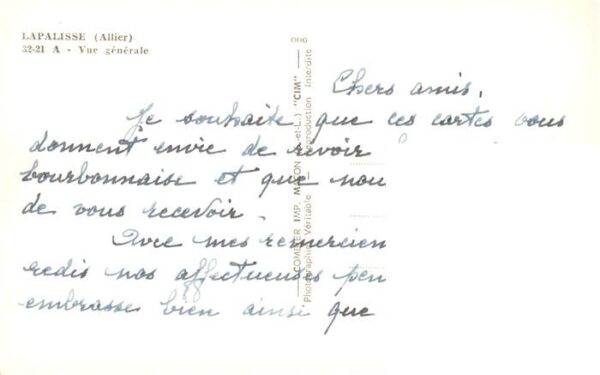 LAPALISSE (Allier)
32-21 A - Vue générale
Chers amis,
Je souhaite que ces cartes vous
donnent envie de revoir
bourbonnaise et que nou
de vous recevoir.
Avec mes remercien
redis nos affectueuses pen
embrasse bien ainsi que
COMBIER IMP. MACON (S.-et-L.) "CIM"
Photographie Véritable - Reproduction Interdite